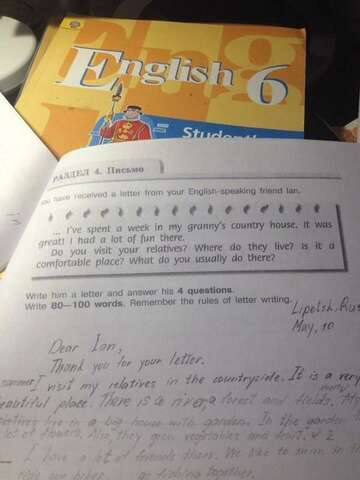 English 6
Student's
РАЗДЕЛ 4. Письмо
You have received a letter from your English-speaking friend Ian.
... I've spent a week in my granny's country house. It was
great! I had a lot of fun there.
Do you visit your relatives? Where do they live? Is it a
comfortable place? What do you usually do there?
Write him a letter and answer his 4 questions.
Write 80—100 words. Remember the rules of letter writing.
Lipetsk, Rus
May, 10
Dear Ian,
Thank you for your letter.
summer, I visit my relatives in the countryside. It is a very
beautiful place. There is a river, a forest and fields. My
live in a big house with garden. In the garden
lot of flowers. Also, they grow vegetables and fruit.
I have a lot of friends there. We like to swim in the
bikes, go fishing together.